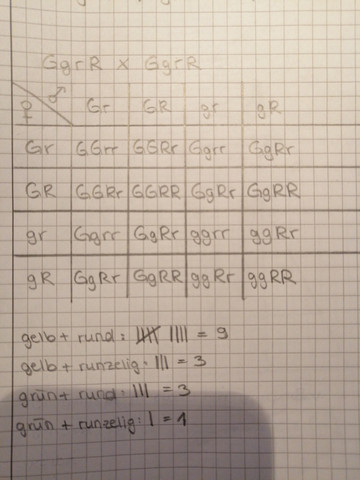 GgrR x GgrR
♀ ♂ Gr GR gr gR
Gr GGrr GGRr Ggrr GgRr
GR GGRr GGRR GgRr GgRR
gr Ggrr GgRr ggrr ggRr
gR GgRr GgRR ggRr ggRR
gelb + rund: |||| |||| = 9
gelb + runzelig: ||| = 3
grün + rund: ||| = 3
grün + runzelig: | = 1